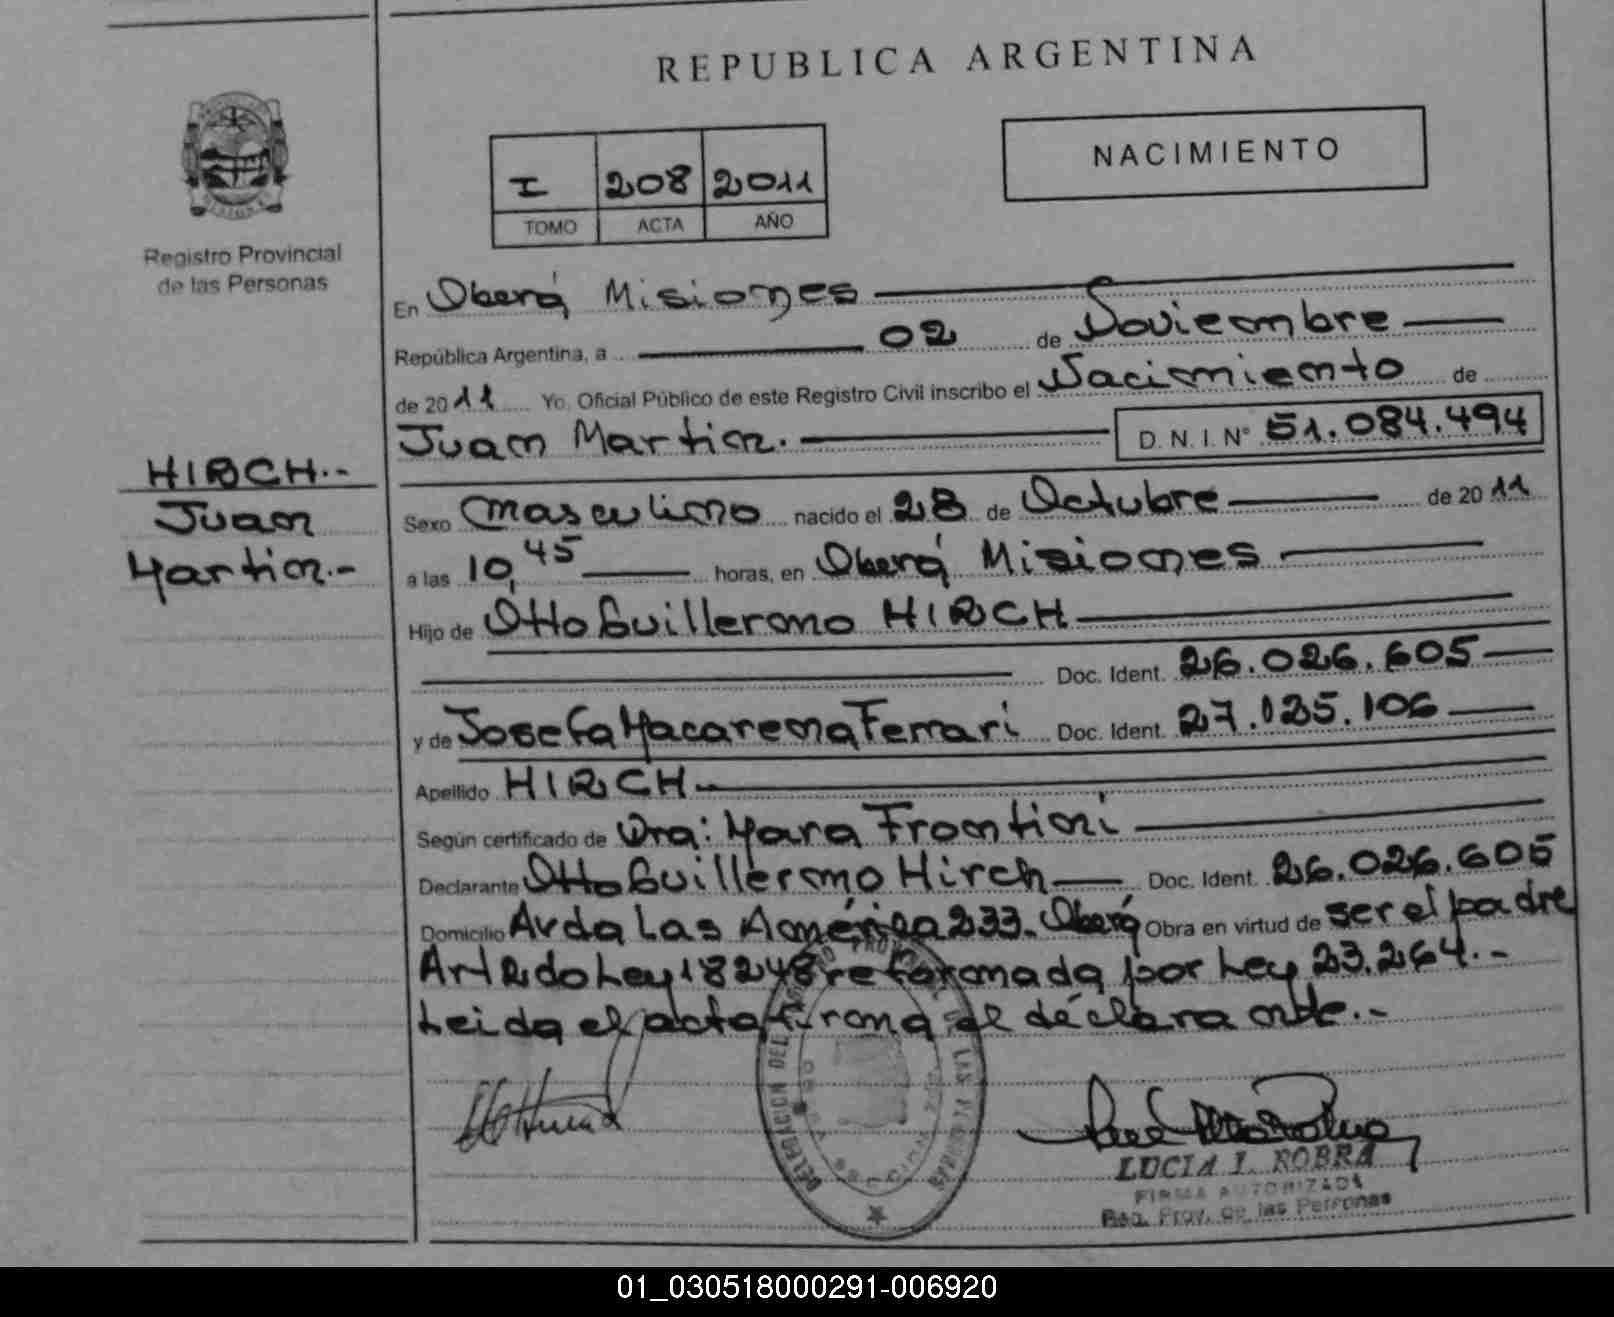 REPUBLICA ARGENTINA
NACIMIENTO
I 208 2011
TOMO ACTA AÑO
Registro Provincial
de las Personas
En Oberá Misiones
República Argentina, a 02 de Noviembre
de 2011 Yo, Oficial Público de este Registro Civil inscribo el Nacimiento de
Juan Martin.- D.N.I.Nº 51.084.494
HIRCH.-
Juan
Martin.-
Sexo masculino nacido el 28 de Octubre de 2011
a las 10,45 horas, en Oberá Misiones
Hijo de Otto Guillermo HIRCH
Doc. Ident. 26.026.605
y de Josefa Macarena Ferrari Doc. Ident. 27.135.106
Apellido HIRCH.-
Según certificado de Dra: Mara Frontini
Declarante Otto Guillermo Hirch Doc. Ident. 26.026.605
Domicilio Avda Las América 233. Oberá Obra en virtud de ser el padre
Art 2do Ley 18248 reformada por Ley 23.264.-
Leida el acta firma el declarante.-
DELEGACION DEL LAS PERSONAS
LUCIA I. ROBRA
FIRMA AUTORIZADA
Reg. Prov. de las Personas
01_030518000291-006920